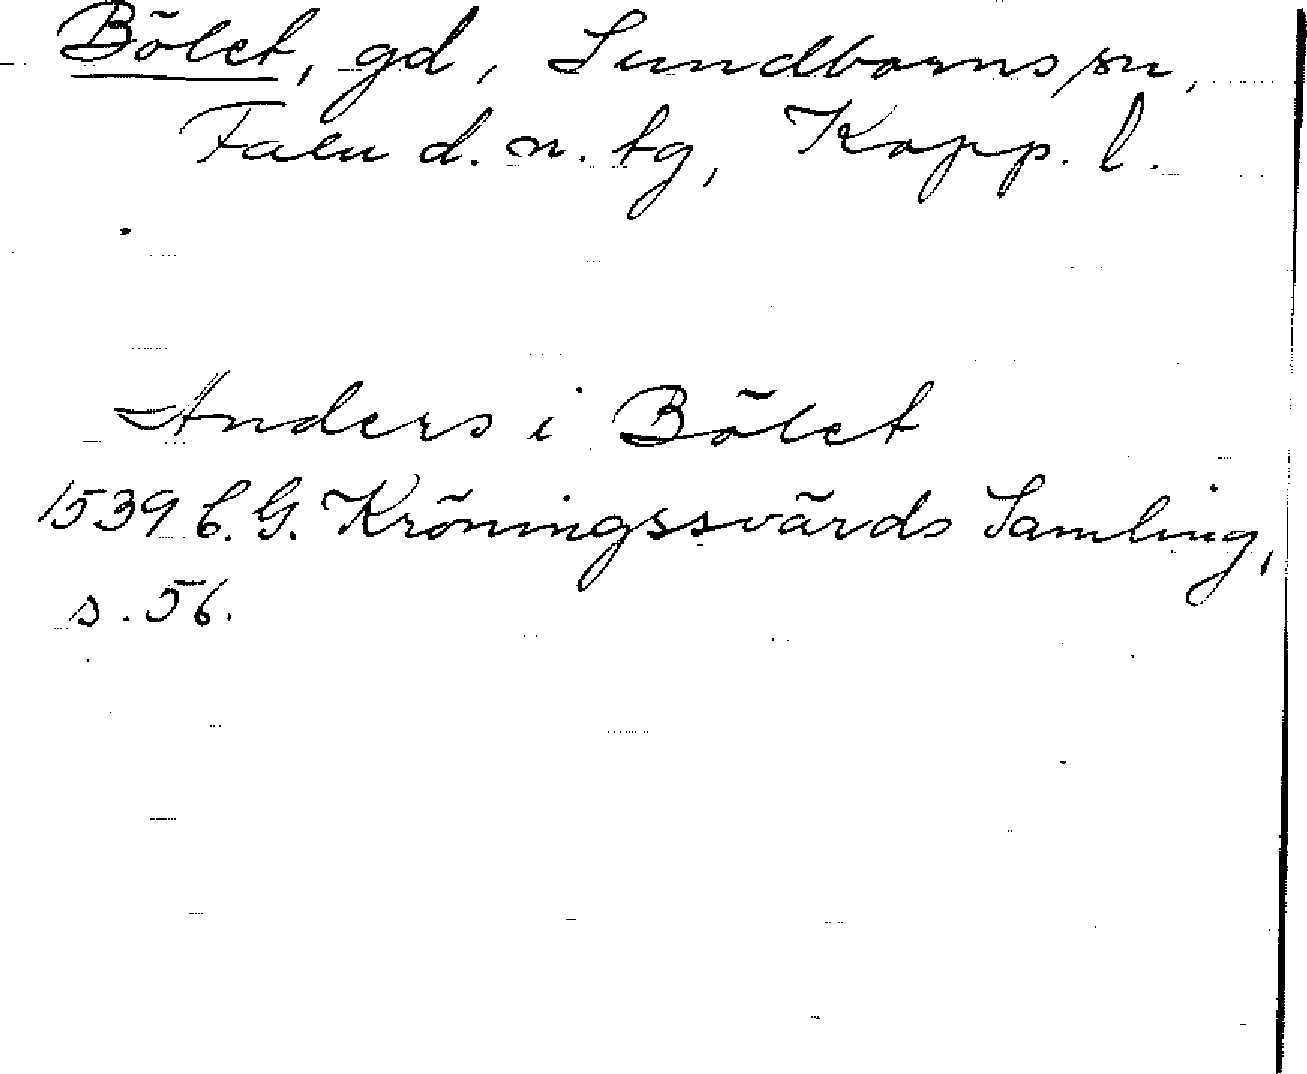 Bölet, gd, Sundborns sn,
Falu d. n. tg, Kopp. l.
Anders i Bölet
1539 C. G. Kröningssvärds Samling,
s. 56.